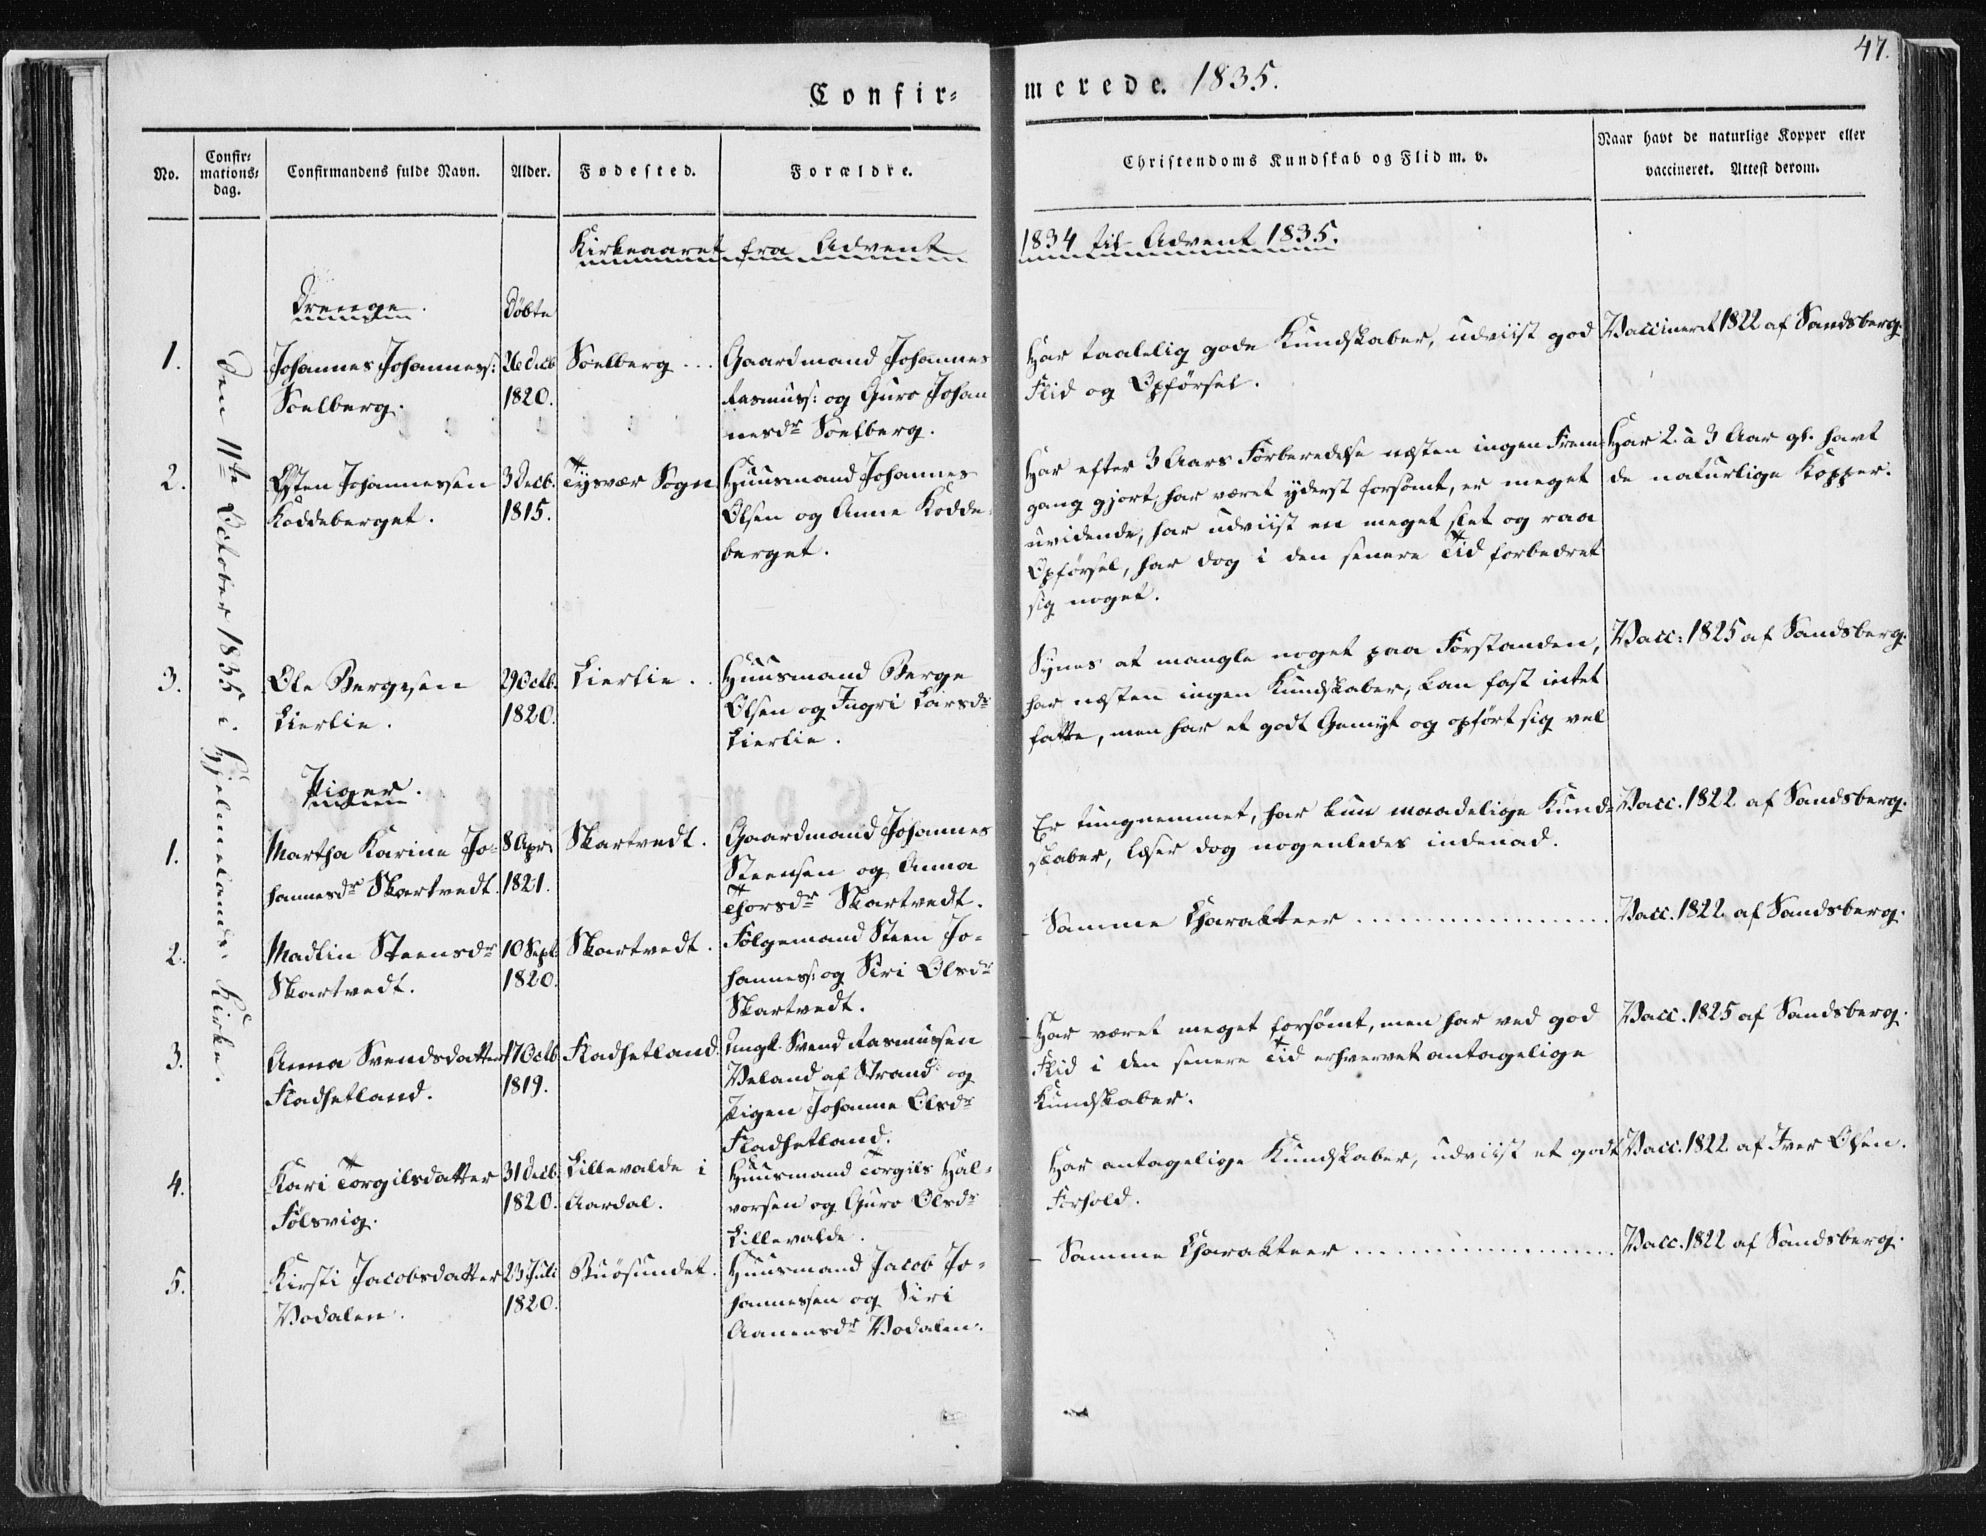 47.
Confir=
merede. 1835.
No.
Confir=
mations=
dag.
Confirmandens fulde Navn.
Alder.
Fødested.
Forældre.
Christendoms Kundskab og Flid m. v.
Naar havt de naturlige Kopper eller
vaccineret. Attest derom.
Kirkeaaret fra Advent
1834 til Advent 1835.
Den 11te October 1835 i Hjelmelands Kirke.
Drenge.
Døbte
1.
Johannes Johanness:
Soelberg.
26 Decb
1820.
Soelberg ...
Gaardmand Johannes
Rasmuss: og Guro Johan
nesdr Soelberg.
Har taalelig gode Kundskaber, udviist god
Flid og Opførsel.
Vaccineret 1822 af Sandsberg.
2.
Østen Johannessen
Koddeberget.
3 Decb.
1815.
Tysvær Sogn
Huusmand Johannes
Olsen og Anne Kodde=
berget.
Har efter 3 Aars Forberedelse næsten ingen Frem=
gang gjort, har været yderst forsømt, er meget
uvidende, har udviist en meget slet og raa
Opførsel, har dog i den senere Tid forbedret
sig noget.
Har 2 à 3 Aar gl. havt
de naturlige Kopper.
3.
Ole Bergesen
Lierlie.
29 Octb.
1820.
Lierlie.
Huusmand Berge
Olsen og Ingri Larsdr
Lierlie.
Synes at mangle noget paa Forstanden,
har næsten ingen Kundskaber, kan fast intet
fatte, men har et godt Gemyt og opført sig vel
Vacc: 1825 af Sandsberg.
Piger.
1.
Martha Karine Jo=
hannesdr Skartvedt.
8 Apr:
1821.
Skartvedt.
Gaardmand Johannes
Steensen og Anna
Thorsdr Skartvedt.
Er tungnemmet, har kun maadelige Kund=
skaber, læser dog nogenledes indenad.
Vacc. 1822 af Sandsberg.
2.
Madlin Steensdr
Skartvedt.
10 Sept.
1820.
Skartvedt.
Følgemand Steen Jo=
hanness: og Siri Olsdr
Skartvedt.
- Samme Charakteer ..................
Vacc. 1822 af Sandsberg.
3.
Anna Svendsdatter
Fladhetland.
17 Octb
1819.
Fladhetland.
Ungk. Svend Rasmussen
Veland af Strand og
Pigen Johanne Olsdr
Fladhetland.
- Har været meget forsømt, men har ved god
Flid i den senere Tid erhvervet antagelige
Kundskaber.
Vacc. 1825 af Sandsberg.
4.
Kari Torgilsdatter
Følsvig.
31 Decb.
1820.
Lillevalde i
Aardal.
Huusmand Torgils Hal=
vorsen og Guro Olsdr
Lillevalde.
Har antagelige Kundskaber, udviist et godt
Forhold.
Vacc. 1822 af Iver Olsen.
5.
Kirsti Jacobsdatter
Vodalen.
23 Juli
1820.
Buøsundet.
Huusmand Jacob Jo=
hannessen og Siri
Aanensdr Vodalen.
- Samme Charakteer ..................
Vacc. 1822 af Sandsberg.